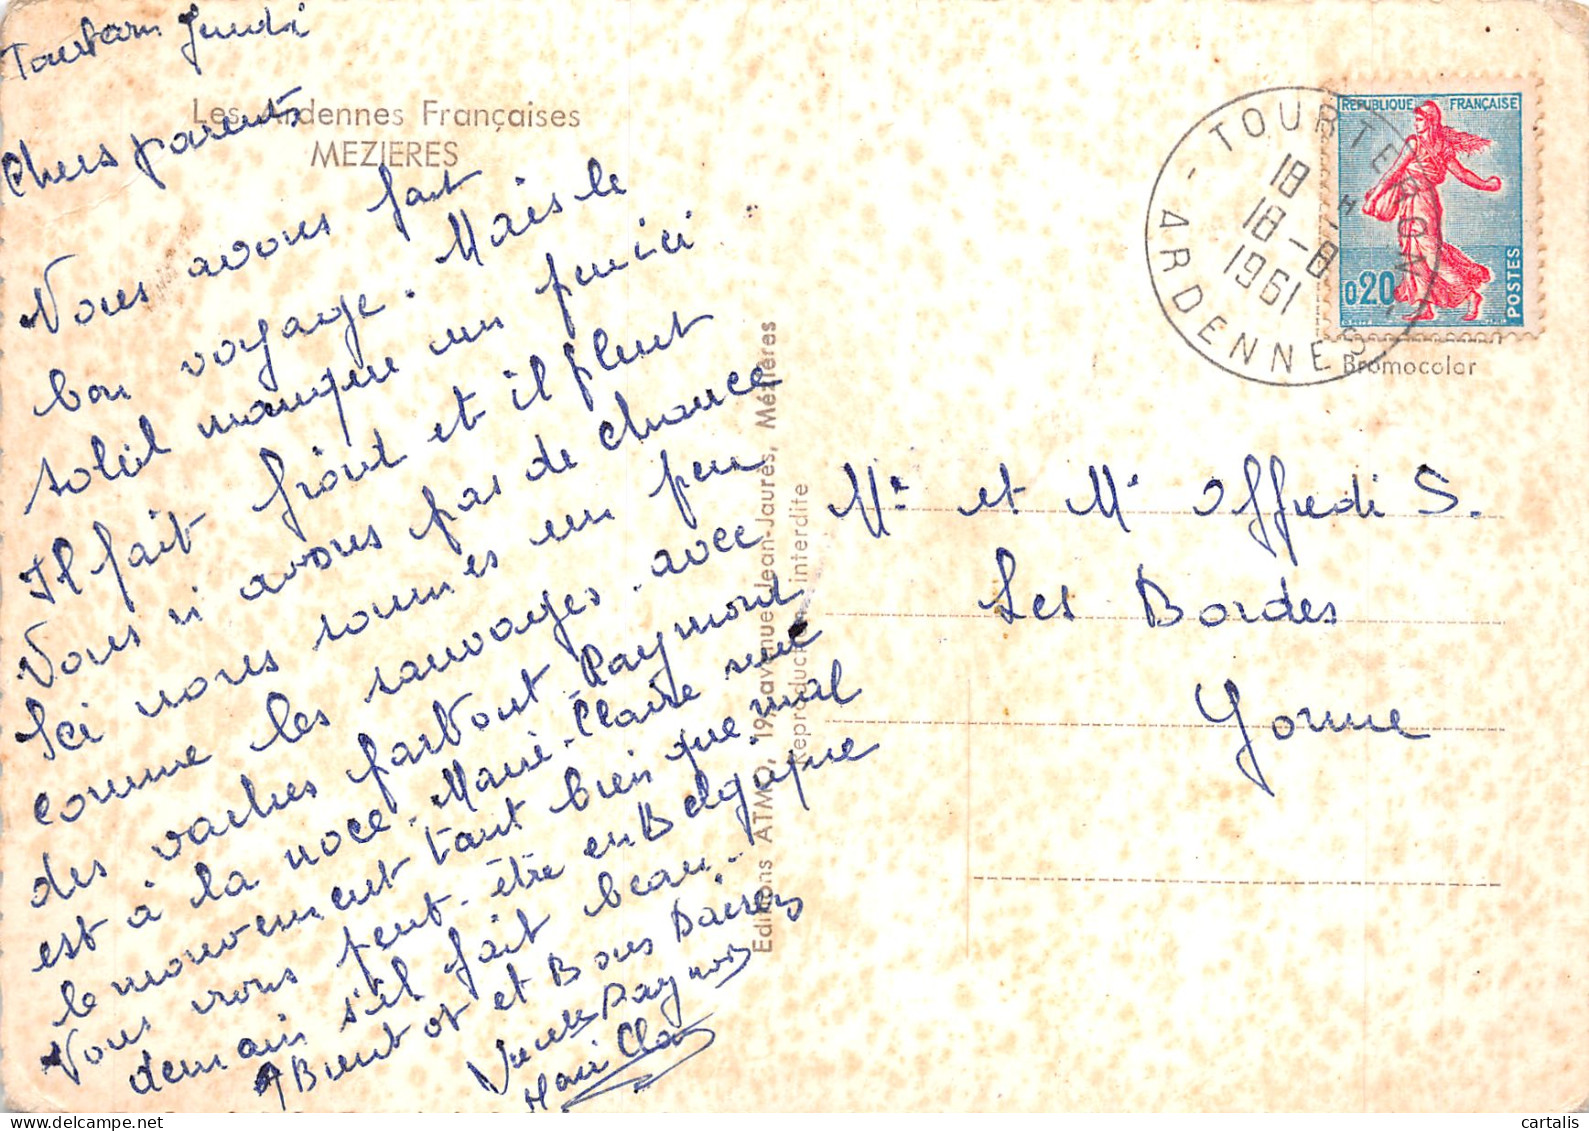 Jeudi
Chers parents
Les Ardennes Françaises
MEZIERES
Nous avons fait
bon voyage. Mais le
soleil manque un peu ici
Il fait froid et il pleut
Nous n'avons pas de chance
Ici nous sommes un peu
comme les sauvages. avec
des vaches partout Raymond
est à la noce. Marie-Claire suit
le mouvement tant bien que mal
Nous irons peut-être en Belgique
demain s'il fait beau.
A Bientot et Bons Baisers
Raymond
Marie Claire
Editions ATMO, 19, avenue Jean-Jaurès, Mézières
Reproduction interdite
TOURTERON
18 H
18-8
1961
ARDENNES
REPUBLIQUE FRANÇAISE
0,20
POSTES
Bromocolor
Mr et Me Offredi S.
Les Bordes
Yonne
cartalis